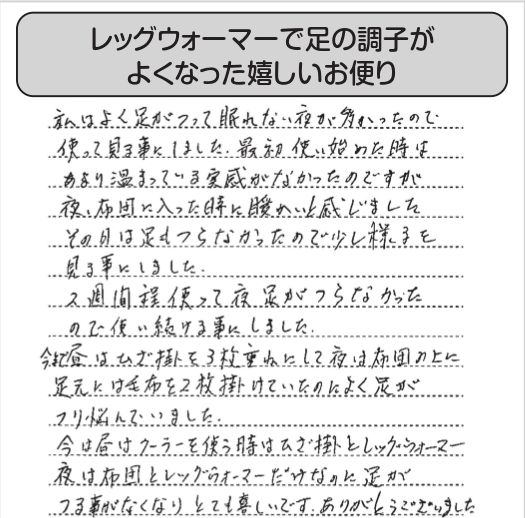 レッグウォーマーで足の調子が
よくなった嬉しいお便り
私はよく足がつって眠れない夜が多かったので
使って見る事にしました。最初使い始めた時は
あまり温まっている実感がなかったのですが
夜、布団に入った時に暖かいと感じました
その日は足もつらなかったので少し様子を
見る事にしました。
2週間程使って夜足がつらなかった
ので使い続ける事にしました。
今まで昼はひざ掛を3枚重ねにして夜は布団の上に
足元には毛布を2枚掛けていたのによく足が
つり悩んでいました。
今は昼はクーラーを使う時はひざ掛とレッグウォーマー
夜は布団とレッグウォーマーだけなのに足が
つる事がなくなりとても喜しいです。ありがとうございました